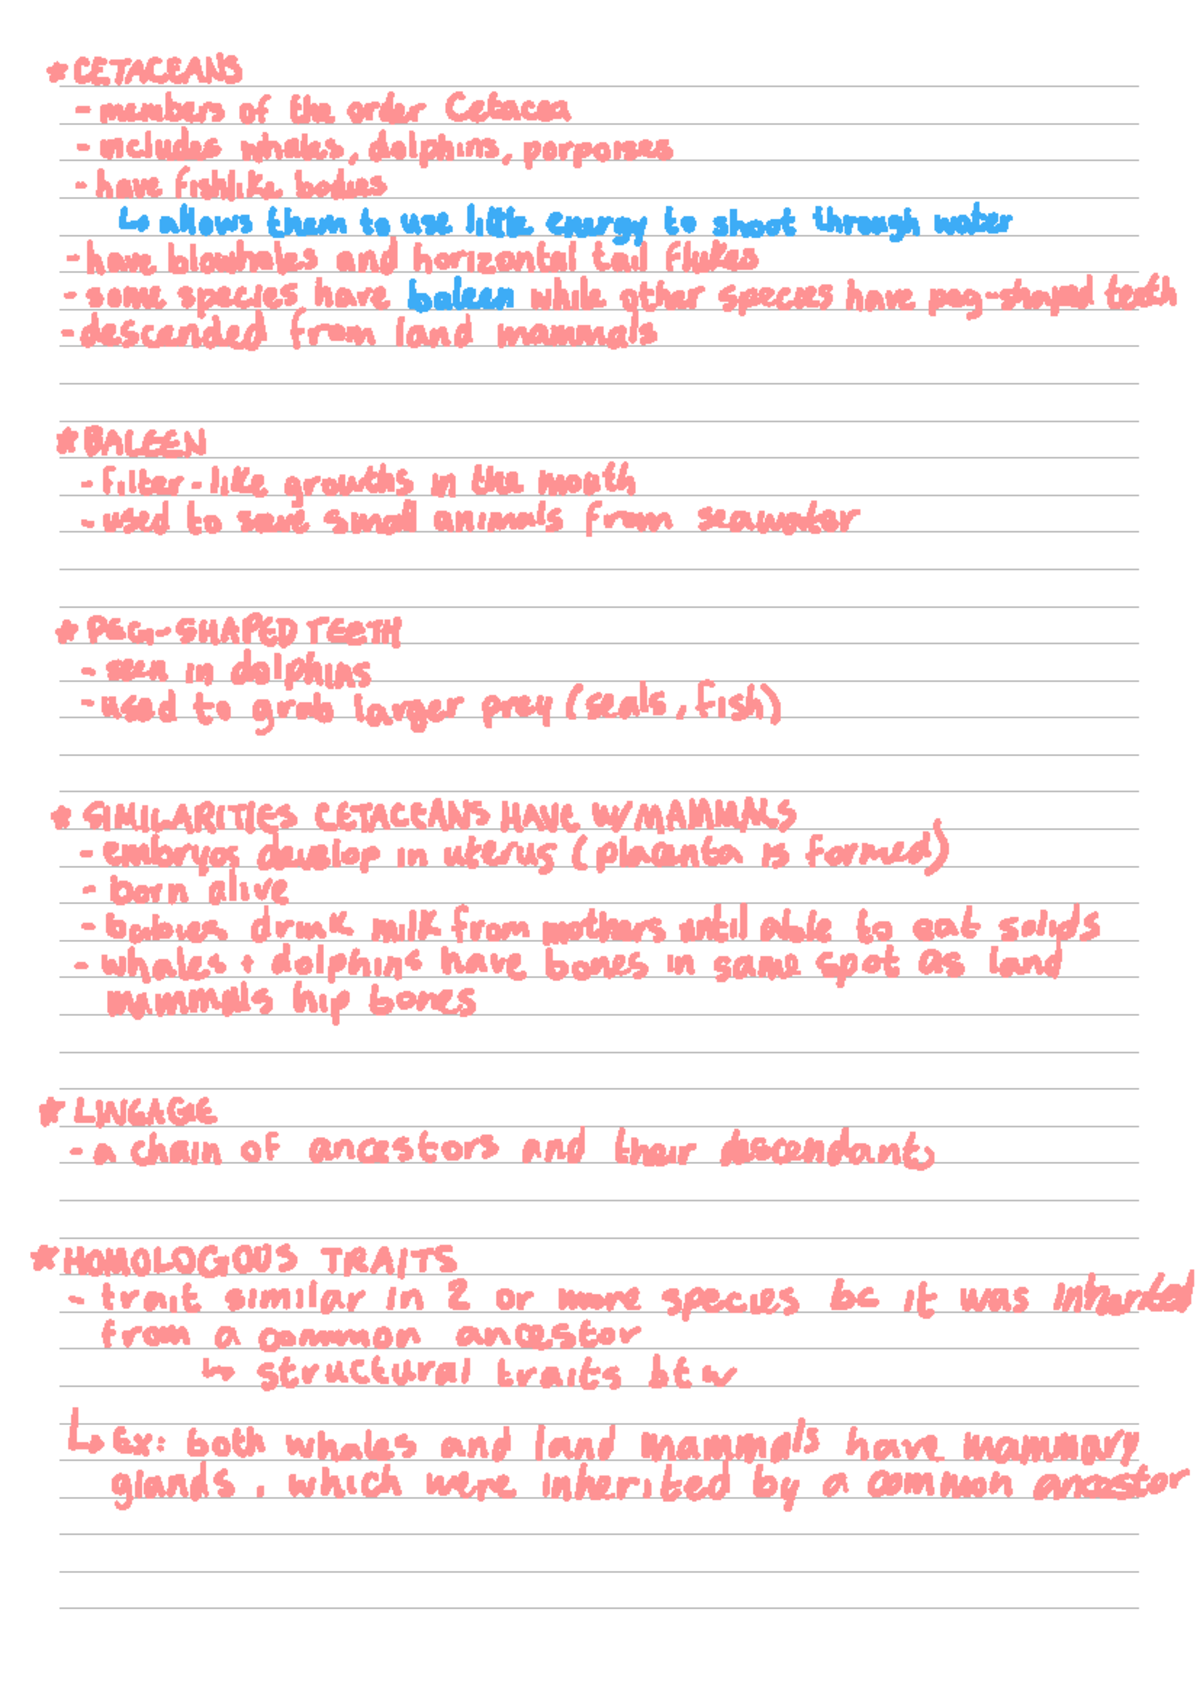 * CETACEANS
- members of the order Cetacea
- includes whales, dolphins, porpoises
- have fishlike bodies
↳ allows them to use little energy to shoot through water
- have blowholes and horizontal tail flukes
- some species have baleen while other species have peg-shaped teeth
- descended from land mammals
* BALEEN
- filter-like growths in the mouth
- used to small animals from seawater
* PEG-SHAPED TEETH
- seen in dolphins
- used to grab larger prey (seals, fish)
* SIMILARITIES CETACEANS HAVE W/ MAMMALS
- embryos develop in uterus (placenta is formed)
- born alive
- babies drink milk from mothers until able to eat solids
- whales + dolphins have bones in same spot as land
mammals hip bones
* LINEAGE
- a chain of ancestors and their descendants
* HOMOLOGOUS TRAITS
- trait similar in 2 or more species bc it was inherited
from a common ancestor
↳ structural traits btw
↳ Ex: both whales and land mammals have mammary
glands, which were inherited by a common ancestor